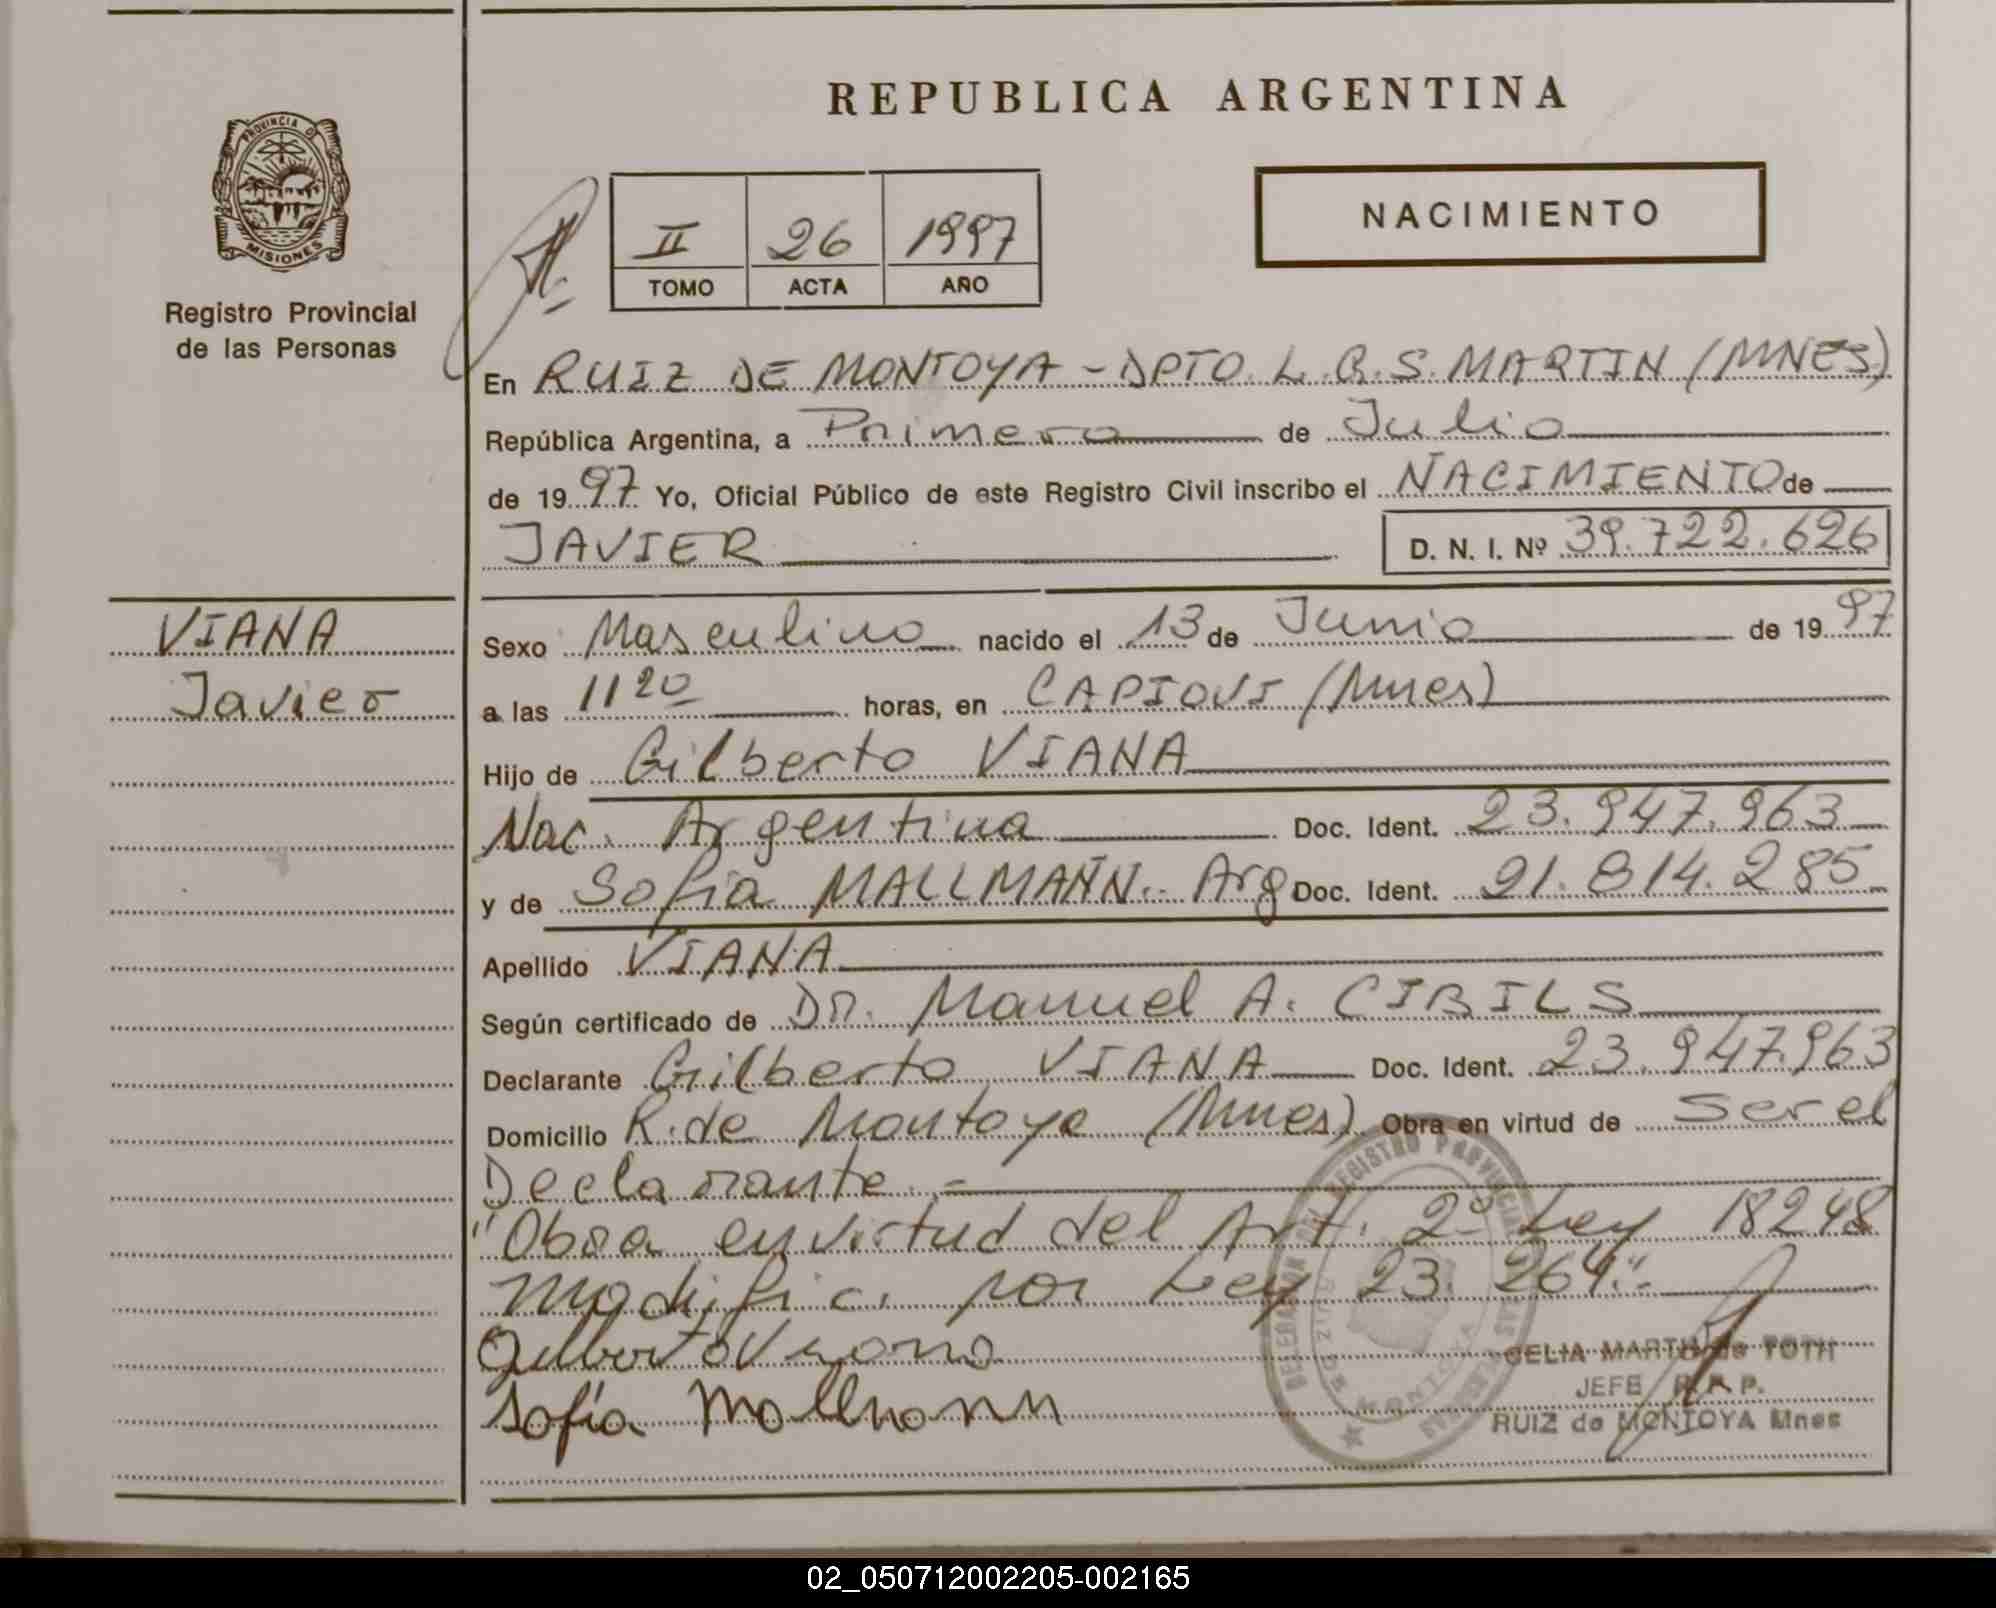 REPUBLICA ARGENTINA
PROVINCIA DE
MISIONES
Registro Provincial
de las Personas
II 26 1997
TOMO ACTA AÑO
NACIMIENTO
En RUIZ DE MONTOYA - DPTO. L. G. S. MARTIN (MNES)
República Argentina, a Primero de Julio
de 1997 Yo, Oficial Público de este Registro Civil inscribo el NACIMIENTO de
JAVIER D. N. I. Nº 39.722.626
VIANA
Javier
Sexo Masculino nacido el 13 de Junio de 1997
a las 11 20 horas, en CAPIOVI (Mnes)
Hijo de Gilberto VIANA
Nac. Argentina Doc. Ident. 23.947.963
y de Sofia MALLMANN.. Arg Doc. Ident. 21.814.285
Apellido VIANA
Según certificado de DR. Manuel A. CIBILS
Declarante Gilberto VIANA Doc. Ident. 23.947.963
Domicilio R. de Montoya (Mnes) Obra en virtud de ser el
Declarante.-
"Obra en virtud del Art. 2º Ley 18248
modific. por Ley 23.264".-
Gilberto Viana
Sofía Mallmann
CELIA MARTH de TOTH
JEFE R. P. P.
RUIZ de MONTOYA Mnes
REGISTRO PROVINCIAL
DE LAS PERSONAS
MONTOYA
02_050712002205-002165